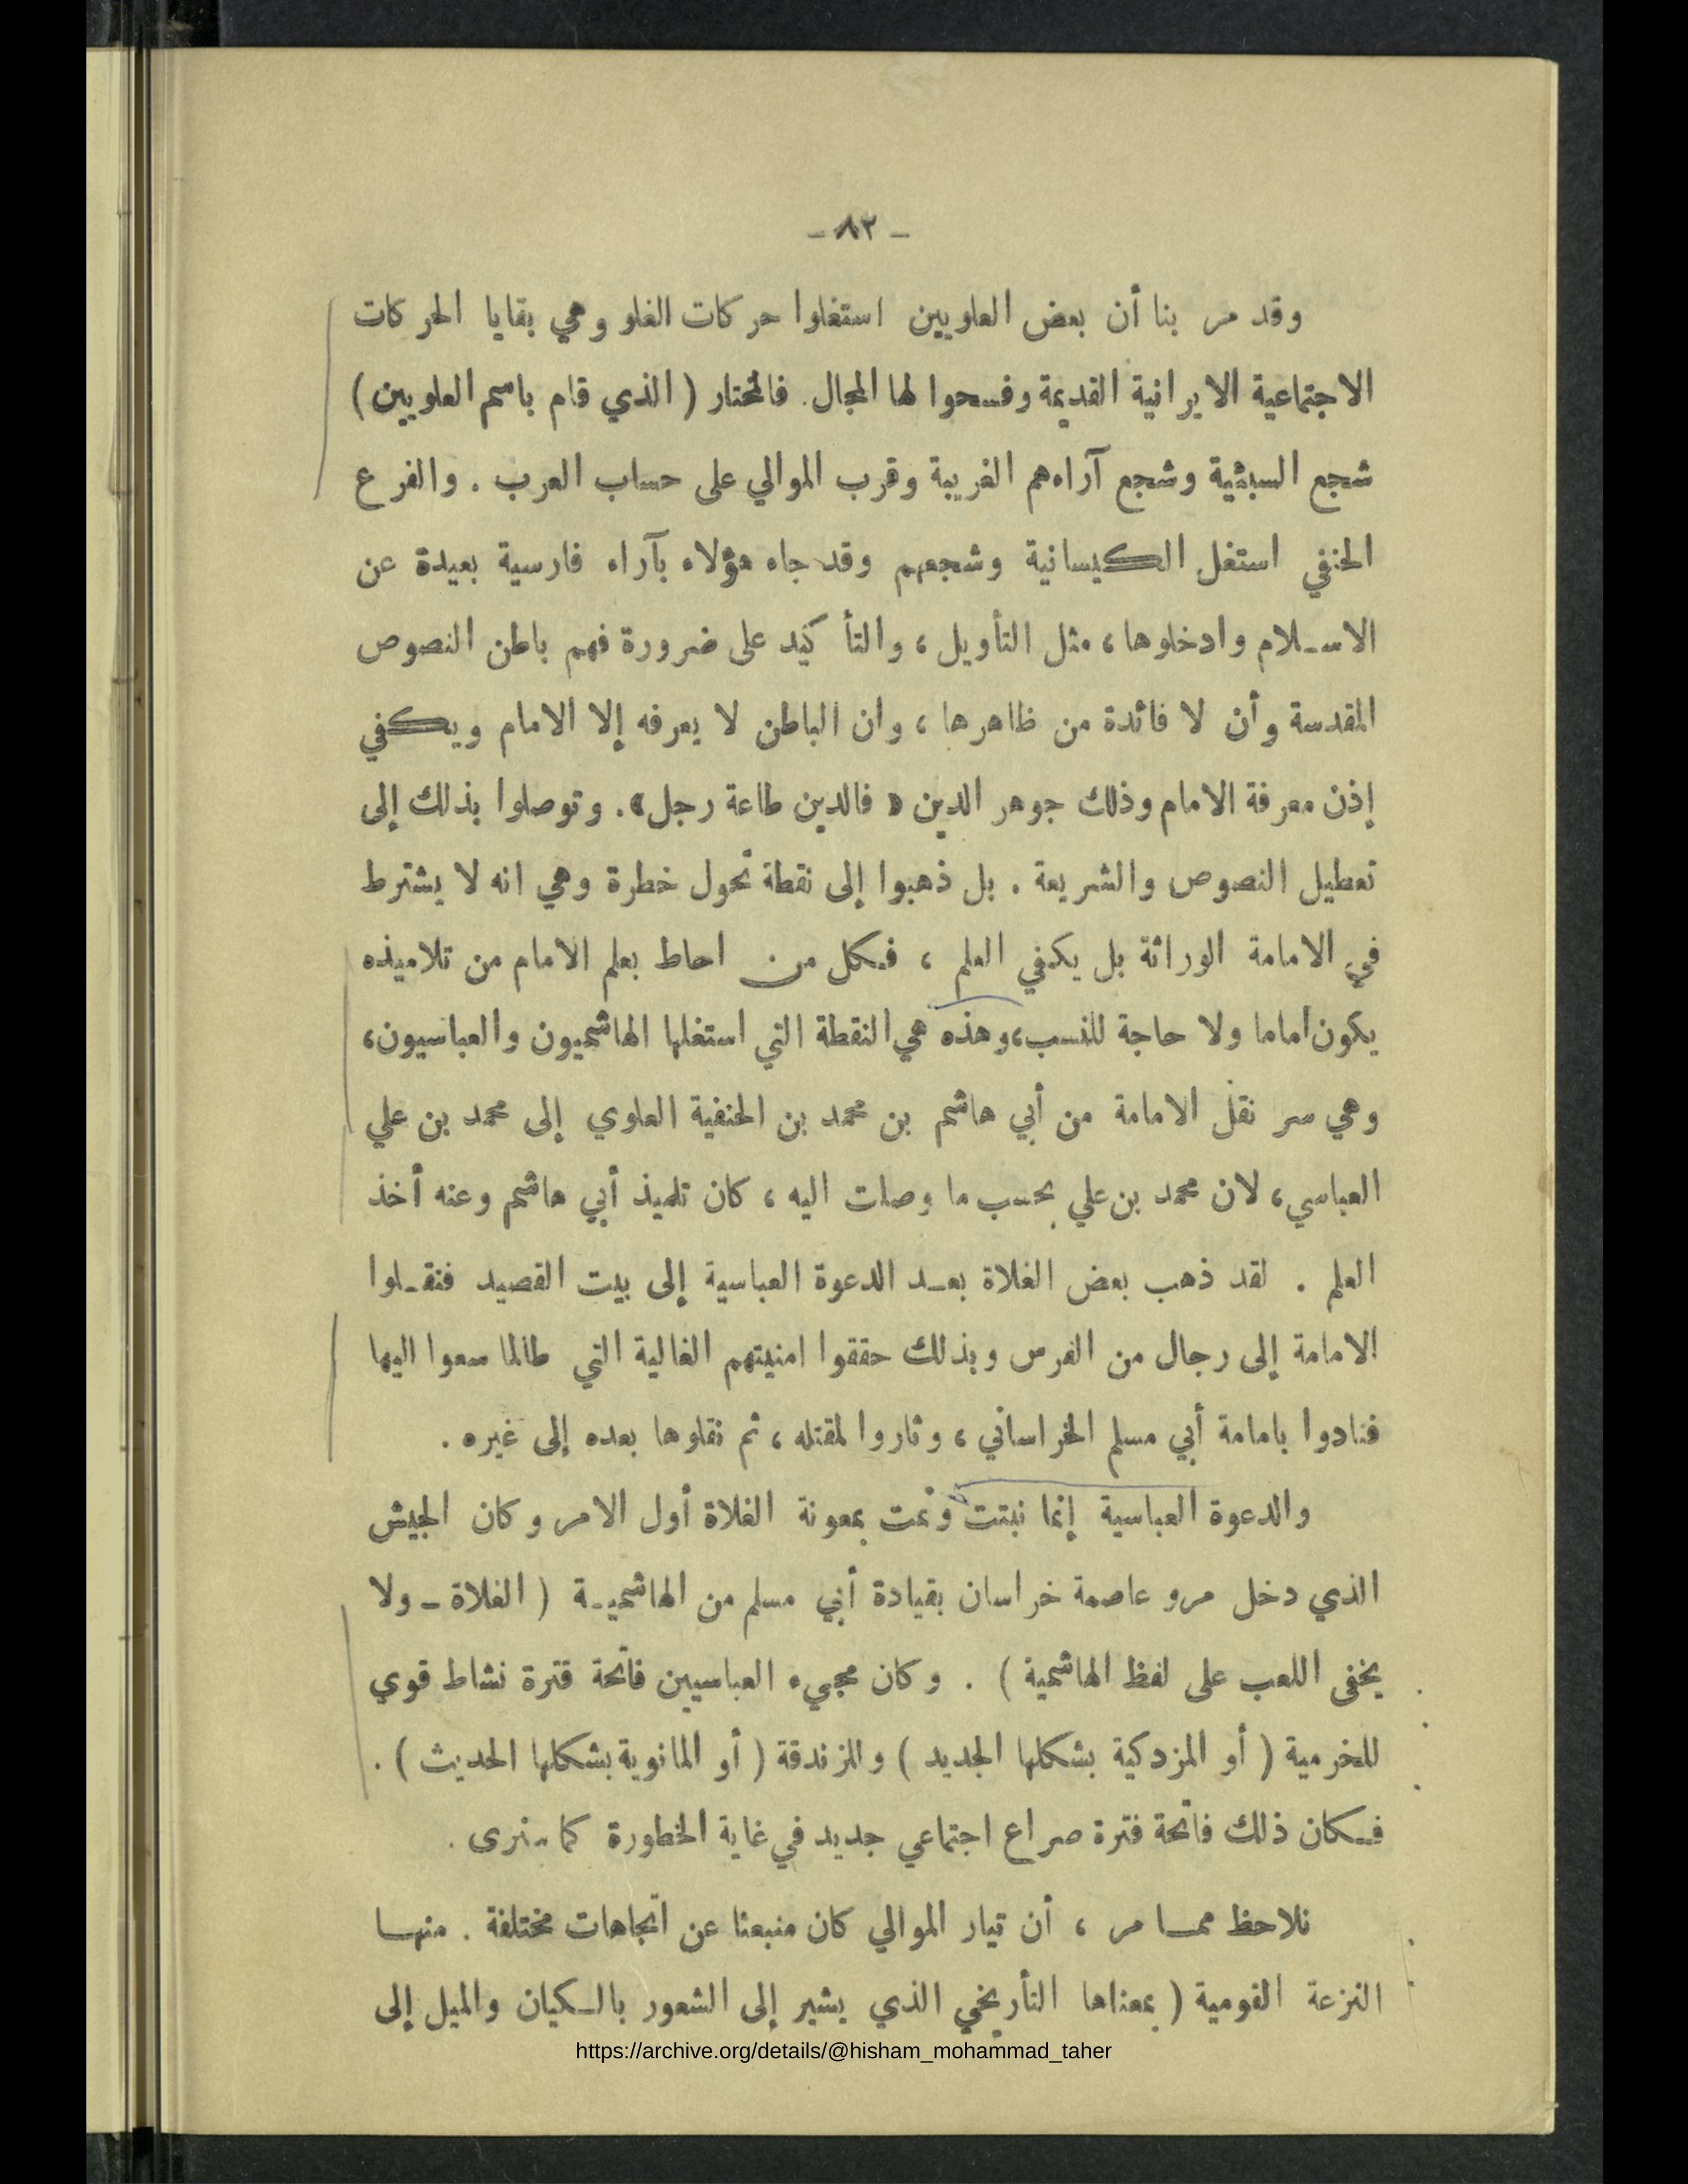 - ٨٢ -
وقد مر بنا أن بعض العلويين استغلوا حركات الغلو وهي بقايا الحركات
الاجتماعية الايرانية القديمة وفسحوا لها المجال. فالمختار ( الذي قام باسم العلويين )
شجع السبئية وشجع آراءهم الغريبة وقرب الموالي على حساب العرب . والفرع
الحنفي استغل الكيسانية وشجعهم وقد جاء هؤلاء بآراء فارسية بعيدة عن
الاسلام وادخلوها ، مثل التأويل ، والتأكيد على ضرورة فهم باطن النصوص
المقدسة وأن لا فائدة من ظاهرها ، وان الباطن لا يعرفه إلا الامام ويكفي
إذن معرفة الامام وذلك جوهر الدين « فالدين طاعة رجل » . وتوصلوا بذلك إلى
تعطيل النصوص والشريعة . بل ذهبوا إلى نقطة تحول خطرة وهي انه لا يشترط
في الامامة الوراثة بل يكفي العلم ، فكل من احاط بعلم الامام من تلاميذه
يكون اماما ولا حاجة للنسب ، وهذه هي النقطة التي استغلها الهاشميون والعباسيون ،
وهي سر نقل الامامة من أبي هاشم بن محمد بن الحنفية العلوي إلى محمد بن علي
العباسي ، لان محمد بن علي بحسب ما وصلت اليه ، كان تلميذ أبي هاشم وعنه أخذ
العلم . لقد ذهب بعض الغلاة بعد الدعوة العباسية إلى بيت القصيد فنقلوا
الامامة إلى رجال من الفرس وبذلك حققوا امنيتهم الغالية التي طالما سعوا اليها
فنادوا بامامة أبي مسلم الخراساني ، وثاروا لمقتله ، ثم نقلوها بعده إلى غيره .
والدعوة العباسية إنما نبتت ونمت بمعونة الغلاة أول الامر وكان الجيش
الذي دخل مرو عاصمة خراسان بقيادة أبي مسلم من الهاشمية ( الغلاة - ولا
يخفى اللعب على لفظ الهاشمية ) . وكان مجيء العباسيين فاتحة فترة نشاط قوي
للخرمية ( أو المزدكية بشكلها الجديد ) والزندقة ( أو المانوية بشكلها الحديث ) .
فكان ذلك فاتحة فترة صراع اجتماعي جديد في غاية الخطورة كما سنرى .
نلاحظ مما مر ، أن تيار الموالي كان منبعثا عن اتجاهات مختلفة . منها
النزعة القومية ( بمعناها التأريخي الذي يشير إلى الشعور بالكيان والميل إلى
https://archive.org/details/@hisham_mohammad_taher